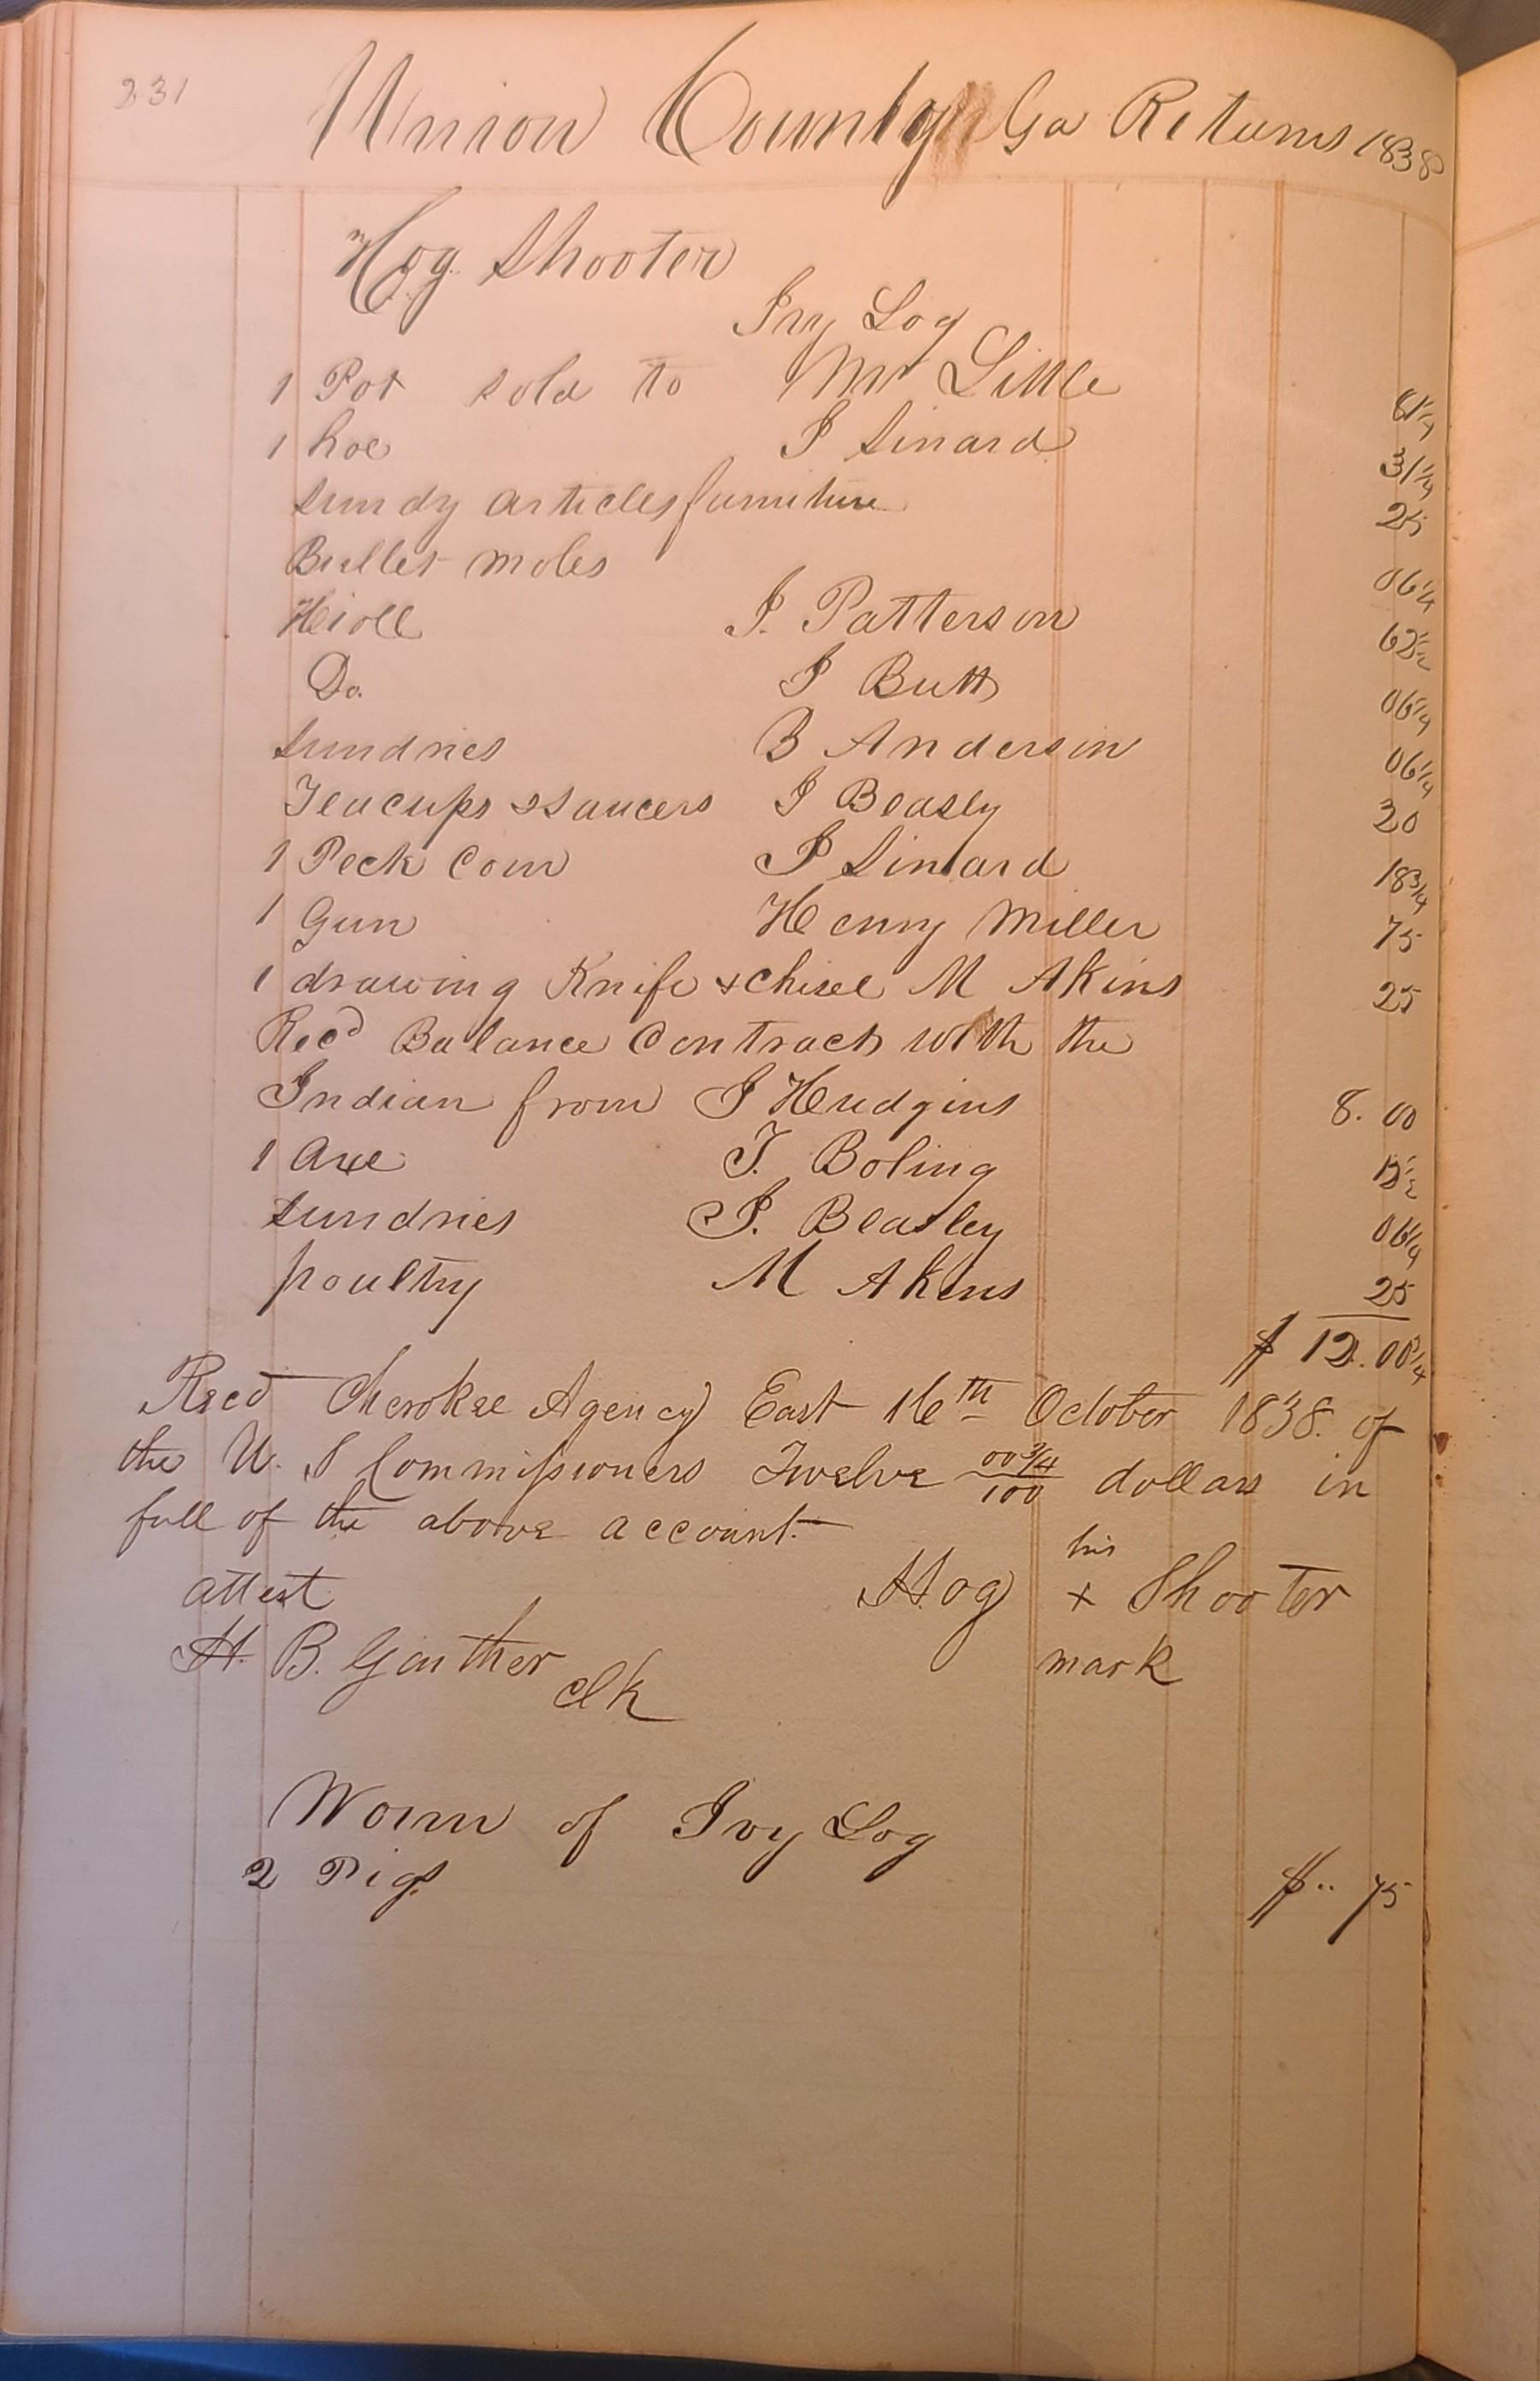 231
Union County Ga Returns 1838
Hog Shooter
Ivy Log
1 Pot sold to Mr Little 81 1/4
1 hoe J Sinard 31 1/4
Sundy articles furniture 25
Bullet moles 06 1/4
J. Patterson 62 1/2
Do. J Butt 06 1/4
Sundries B Anderson 06 1/4
Teacups & Saucers J Beasly 20
1 Peck Corn P Sinard 18 3/4
1 Gun Henry Miller 75
1 drawing Knife & chisel M Akins 25
Recd Balance Contract with the
Indian from J Hudgins 8.00
1 Axe T. Boling 12 1/2
Sundries J. Beasley 06 1/4
poultry M Akins 25
$ 12.00 3/4
Recd Cherokee Agency East 16th October 1838. of
the U. S Commissioners Twelve 00 3/4/100 dollars in
full of the above account.
his
attest Hog x Shooter
H. B. Gaither mark
Clk
Worm of Ivy Log
2 Pigs $ .. 75